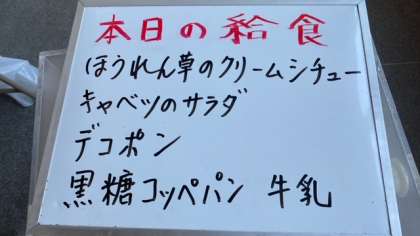 本日の給食
ほうれん草のクリームシチュー
キャベツのサラダ
デコポン
黒糖コッペパン 牛乳